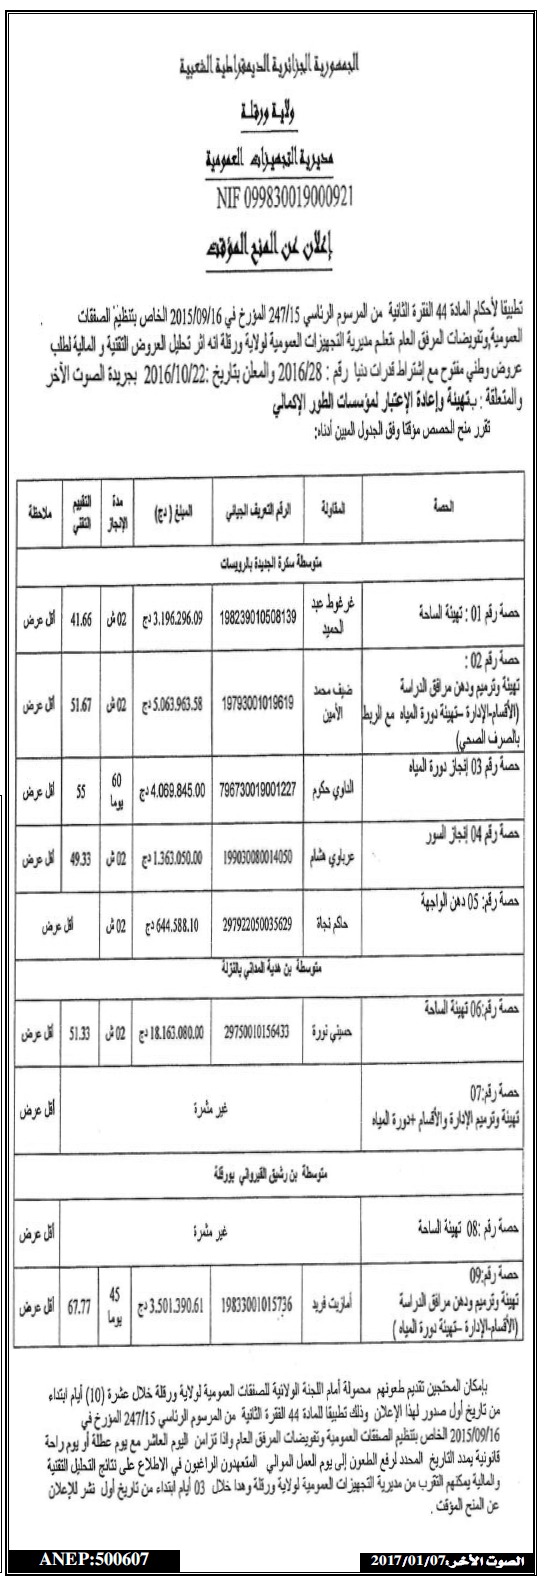 الجمهورية الجزائرية الديمقراطية الشعبية
ولاية ورقلة
مديرية التجهيزات العمومية
NIF 099830019000921
إعلان عن المنح المؤقت
تطبيقا لأحكام المادة 44 الفقرة الثانية من المرسوم الرئاسي 247/15 المؤرخ في 2015/09/16 الخاص بتنظيم الصفقات
العمومية وتفويضات المرفق العام ،تعلم مديرية التجهيزات العمومية لولاية ورقلة انه اثر تحليل العروض التقنية و المالية لطلب
عروض وطني مفتوح مع إشتراط قدرات دنيا رقم : 2016/28 والمعلن بتاريخ :2016/10/22 بجريدة الصوت الأخر
والمتعلقة : بـتهيئة وإعادة الإعتبار لمؤسسات الطور الإكمالي
تقرر منح الحصص مؤقتا وفق الجدول المبين أدناه:
الحصة المقاولة الرقم التعريف الجبائي المبلغ ( دج) مدة الإنجاز التقييم التقني ملاحظة
متوسطة سكرة الجديدة بالرويسات
حصة رقم 01 : تهيئة الساحة غرغوط عبد الحميد 198239010508139 3.196.296.09 دج 02 ش 41.66 أقل عرض
حصة رقم 02 :
تهيئة وترميم ودهن مرافق الدراسة
(الأقسام-الإدارة –تهيئة دورة المياه مع الربط
بالصرف الصحي) ضيف محمد الأمين 19793001019619 5.063.963.58 دج 02 ش 51.67 أقل عرض
حصة رقم 03 إنجاز دورة المياه الداوي حكوم 796730019001227 4.069.845.00 دج 60 يوما 55 أقل عرض
حصة رقم 04 إنجاز السور عرباوي هشام 199030080014050 1.363.050.00 دج 02 ش 49.33 أقل عرض
حصة رقم: 05 دهن الواجهة حاكم نجاة 297922050035629 644.588.10 دج 02 ش أقل عرض
متوسطة بن هدية المداني بالنزلة
حصة رقم:06 تهيئة الساحة حسيني نورة 29750010156433 18.163.080.00 دج 02 ش 51.33 أقل عرض
حصة رقم:07
تهيئة وترميم الإدارة والأقسام +دورة المياه غير مثمرة أقل عرض
متوسطة بن رشيق القيرواني بورقلة
حصة رقم :08 تهيئة الساحة غير مثمرة أقل عرض
حصة رقم:09
تهيئة وترميم ودهن مرافق الدراسة
(الأقسام-الإدارة –تهيئة دورة المياه ) أمازيت فريد 19833001015736 3.501.390.61 دج 45 يوما 67.77 أقل عرض
بإمكان المحتجين تقديم طعونهم محمولة أمام اللجنة الولائية للصفقات العمومية لولاية ورقلة خلال عشرة (10) أيام ابتداء
من تاريخ أول صدور لهذا الإعلان وذلك تطبيقا للمادة 44 الفقرة الثانية من المرسوم الرئاسي 247/15 المؤرخ في
2015/09/16 الخاص بتنظيم الصفقات العمومية وتفويضات المرفق العام واذا تزامن اليوم العاشر مع يوم عطلة أو يوم راحة
قانونية يمدد التاريخ المحدد لرفع الطعون إلى يوم العمل الموالي المتعهدون الراغبون في الاطلاع على نتائج التحليل التقنية
والمالية يمكنهم التقرب من مديرية التجهيزات العمومية لولاية ورقلة وهدا خلال 03 أيام ابتداء من تاريخ أول نشر للإعلان
عن المنح المؤقت .
الصوت الآخر:2017/01/07
ANEP:500607